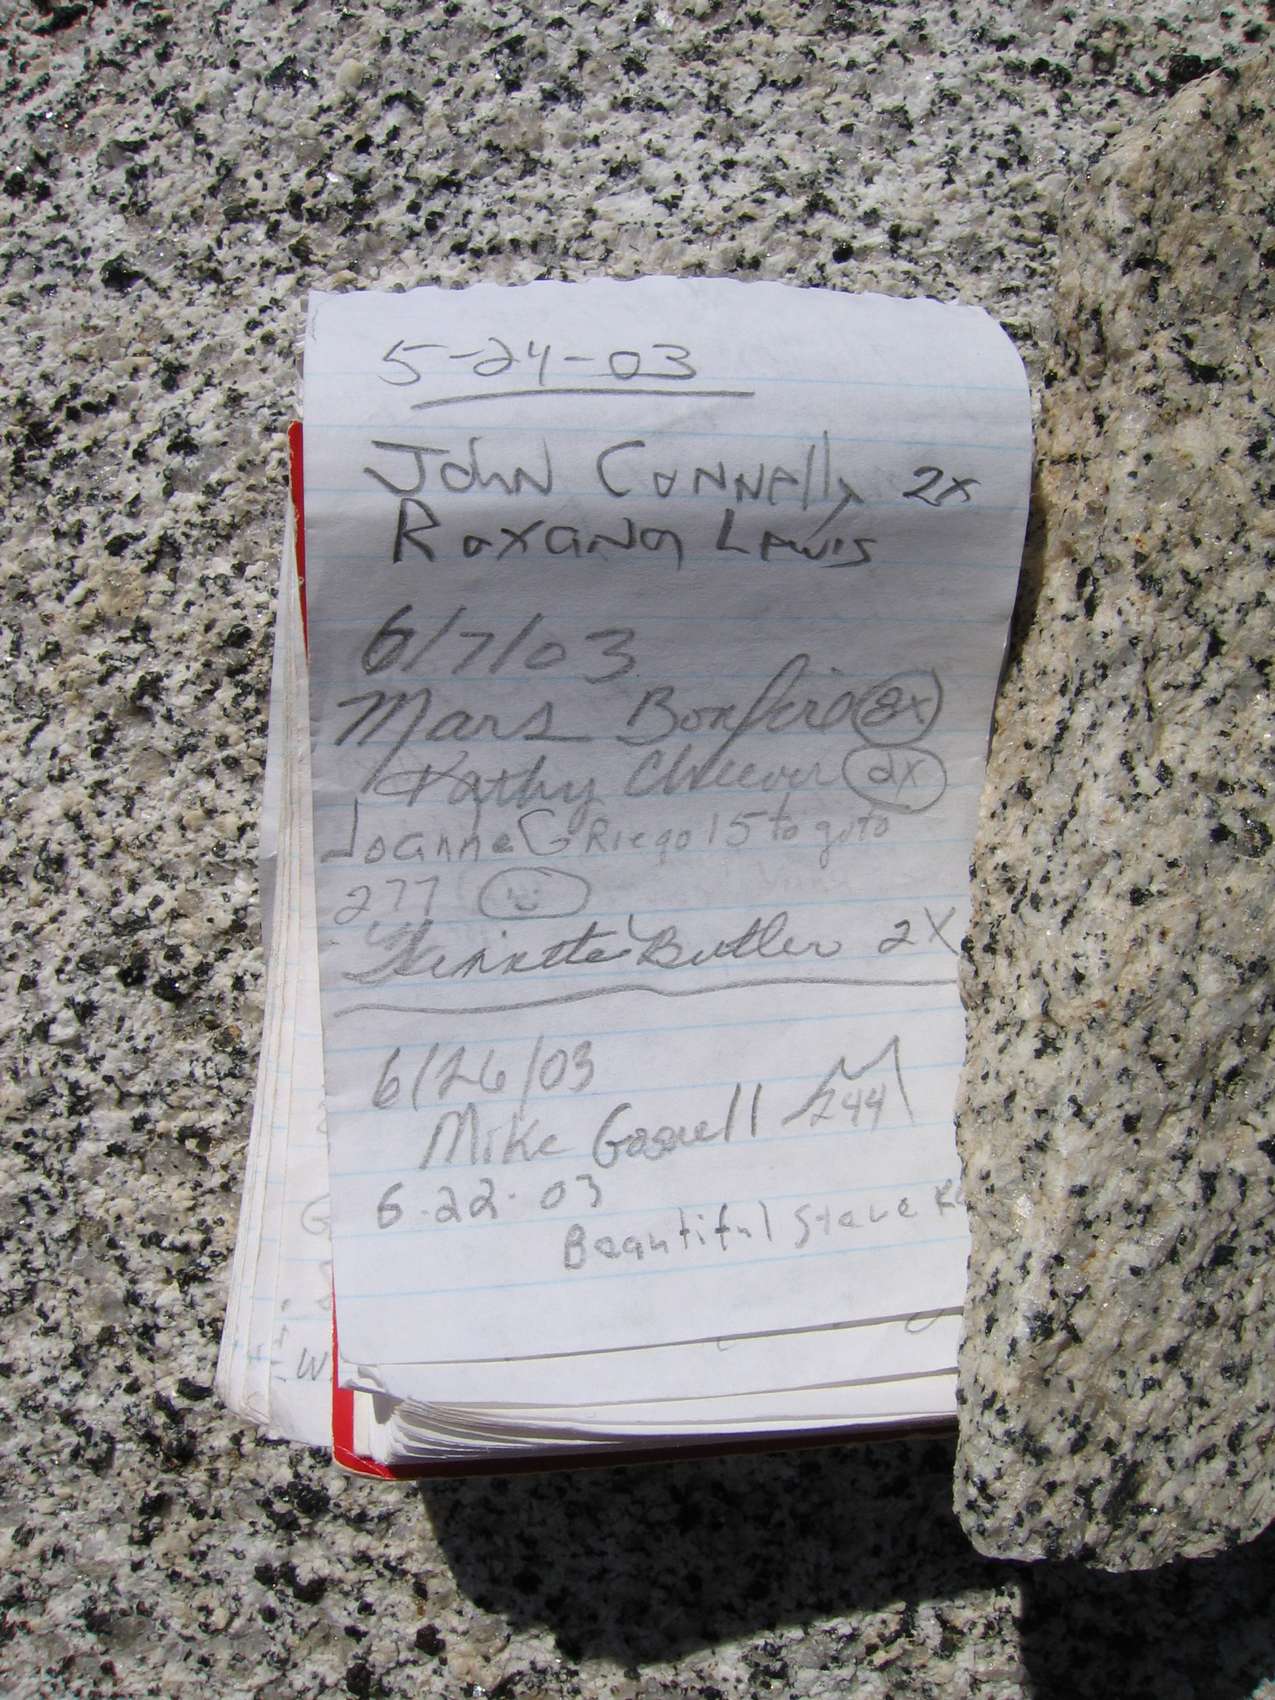 5-24-03
John Connelly 2x
Roxana Lewis
6/7/03
Mars Bonfire 8x
Kathy Cheever 2x
Joanne Griego 15 to go to
277
Butler 2X
6/26/03
Mike 244
6.22.03
Beautiful Steve